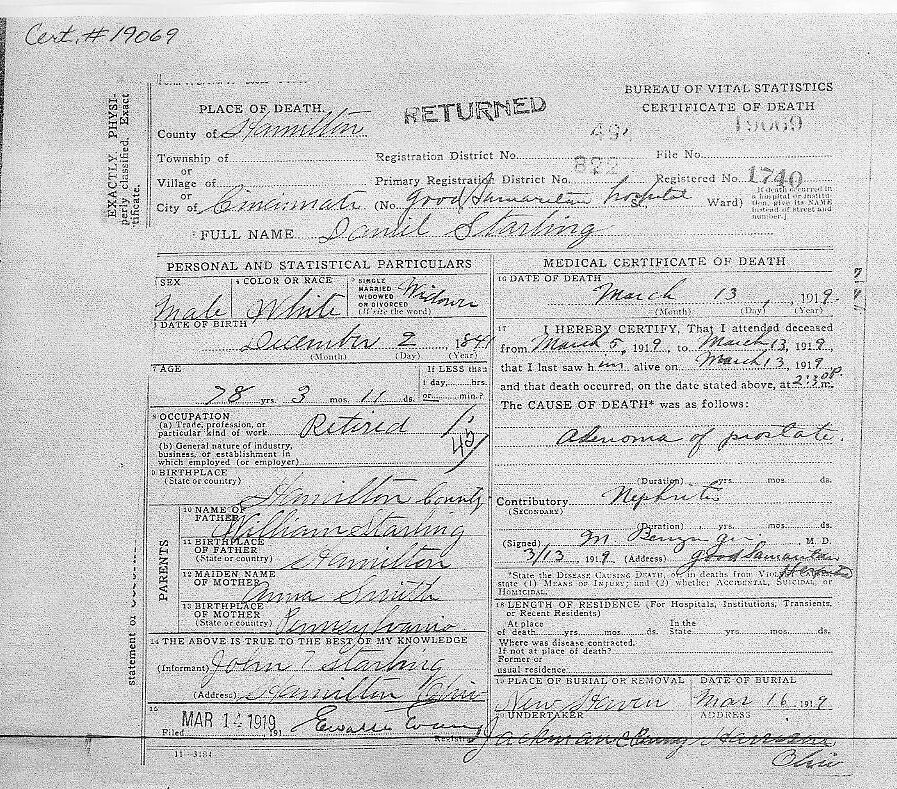 Cert. #19069
EXACTLY. PHYSI-
perly classified. Exact
tificate.
statement of
RETURNED
BUREAU OF VITAL STATISTICS
CERTIFICATE OF DEATH
PLACE OF DEATH.
County of Hamilton
19069
Township of
Registration District No. 491 File No.
or
Village of
Primary Registration District No. 822 Registered No. 1740
or
City of Cincinnati (No. Good Samaritan hospital St. Ward)
[If death occurred in
a hospital or institu-
tion, give its NAME
instead of street and
number.]
FULL NAME Daniel Starling
PERSONAL AND STATISTICAL PARTICULARS
3 SEX
Male
4 COLOR OR RACE
White
5 SINGLE
MARRIED
WIDOWED
OR DIVORCED
(Write the word)
Widower
DATE OF BIRTH
December 2, 184
(Month) (Day) (Year)
7 AGE
78 yrs. 3 mos. 11 ds.
If LESS than
1 day, hrs.
or min.?
8 OCCUPATION
(a) Trade, profession, or
particular kind of work Retired
(b) General nature of industry,
business, or establishment in
which employed (or employer)
9 BIRTHPLACE
(State or country)
Hamilton County
PARENTS
10 NAME OF
FATHER
William Starling
11 BIRTHPLACE
OF FATHER
(State or country)
Hamilton
12 MAIDEN NAME
OF MOTHER
Anna Smith
13 BIRTHPLACE
OF MOTHER
(State or country)
Pennsylvania
14 THE ABOVE IS TRUE TO THE BEST OF MY KNOWLEDGE
(Informant) John T Starling
(Address) Hamilton Ohio
15
Filed MAR 14 1919 191
Registrar
11-3184
MEDICAL CERTIFICATE OF DEATH
16 DATE OF DEATH
March 13, 1919.
(Month) (Day) (Year)
17 I HEREBY CERTIFY, That I attended deceased
from March 5, 1919, to March 13, 1919,
that I last saw him alive on March 13, 1919
and that death occurred, on the date stated above, at 2:30 P. m.
The CAUSE OF DEATH* was as follows:
Adenoma of prostate.
(Duration) yrs. mos. ds.
Contributory Nephritis
(SECONDARY)
(Duration) yrs. mos. ds.
(Signed) M. M. D.
3/13 1919 (Address) Good Samaritan
Hospital
*State the DISEASE CAUSING DEATH, or, in deaths from VIOLENT CAUSES,
state (1) MEANS OF INJURY; and (2) whether ACCIDENTAL, SUICIDAL, or
HOMICIDAL.
18 LENGTH OF RESIDENCE (For Hospitals, Institutions, Transients,
or Recent Residents)
At place In the
of death yrs. mos. ds. State yrs. mos. ds.
Where was disease contracted,
If not at place of death?
Former or
usual residence
19 PLACE OF BURIAL OR REMOVAL
New Haven
DATE OF BURIAL
Mar 16 1919
UNDERTAKER ADDRESS
Jackman Harrison
Ohio